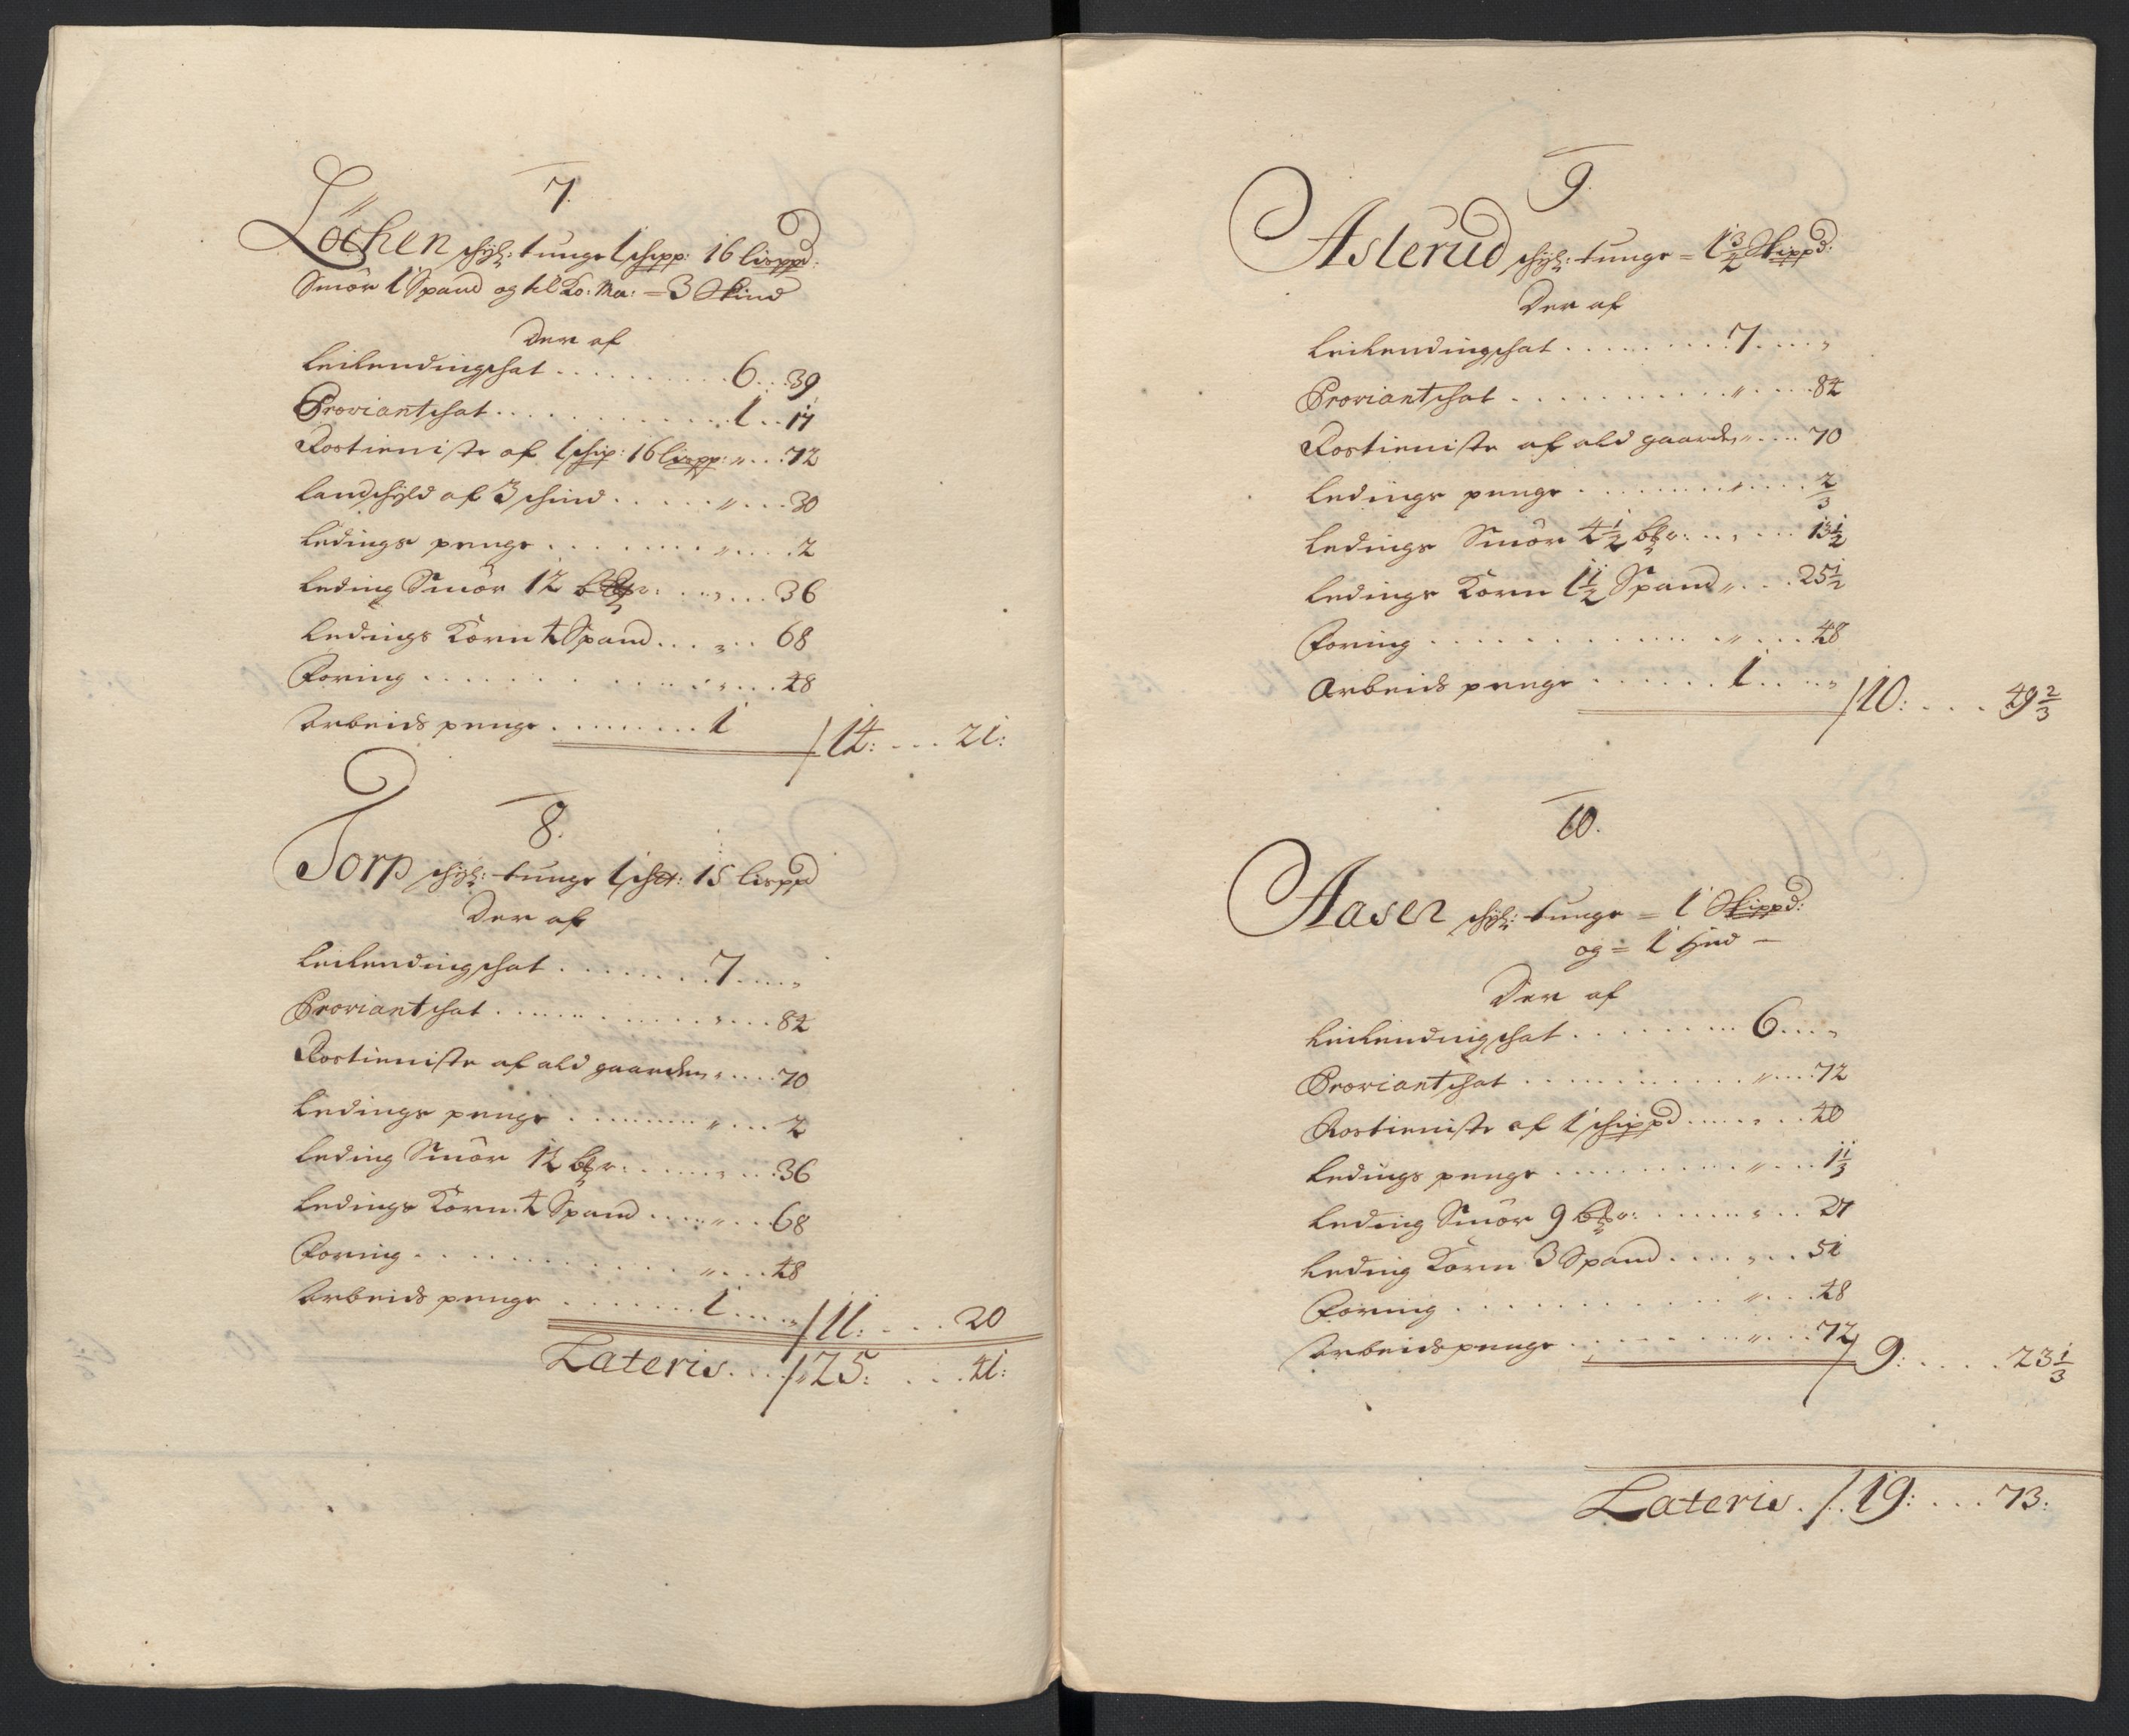 7.
Löchen schÿl: tunge 1 schipp: 16 lispp:
Smör 1 Spand og til Ko: Ma: = 3 Skind
Der af
Leilendingschat . . . 6 . . 39
Proviantschat . . . 1 . . 17
Rostieniste af 1 schip: 16 lispp: „ . . 72
landschÿld af 3 schind . . . „ . . 30
Ledings penge . . . „ . . 2
Leding Smör 12 . . . „ . . 36
Ledings Korn 4 Spand . . . „ . . 68
Foring . . . „ . . 48
Arbeids penge . . . 1
/ 14: . . . 21:
8.
Torp schÿl: tunge 1 sch: 15 lispp
Der af
Leilendingschat . . . 7 . . „
Proviantschat . . . „ . . 84
Rostieniste af ald gaarden „ . . 70
Ledings penge . . . „ . . 2
Leding Smör 12 . . . „ . . 36
Ledings Korn 4 Spand . . . „ . . 68
Foring . . . „ . . 48
Arbeids penge . . . 1 . . „
/ 11: . . . 20
Lateris . . . / 25: . . . 41:
9.
Asterud schÿl: tunge = 1 3/4 Skippd:
Der af
Leilendingschat . . . 7 . . „
Proviantschat . . . „ . . 84
Rostieniste af ald gaarden „ . . 70
Ledings penge . . . „ . . 2/3
Ledings Smör 4 1/2 . . . „ . . 13 1/2
Ledings Korn 1 1/2 Spand „ . . 25 1/2
Foring . . . „ . . 48
Arbeids penge . . . 1 . . „
/ 10: . . . 49 2/3
10.
Aasen schÿl: tunge = 1 Skippd:
og = 1 Hud –
Der af
Leilendingschat . . . 6 . . „
Proviantschat . . . „ . . 72
Rostieniste af 1 schippd . . . „ . . 40
Ledings penge . . . „ . . 1 1/3
Leding Smör 9 . . . „ . . 27
Leding Korn 3 Spand . . . „ . . 51
Foring . . . „ . . 48
Arbeidspenge . . . „ . . 72
/ 9: . . . 23 1/3
Lateris . / 19: . . . 73: